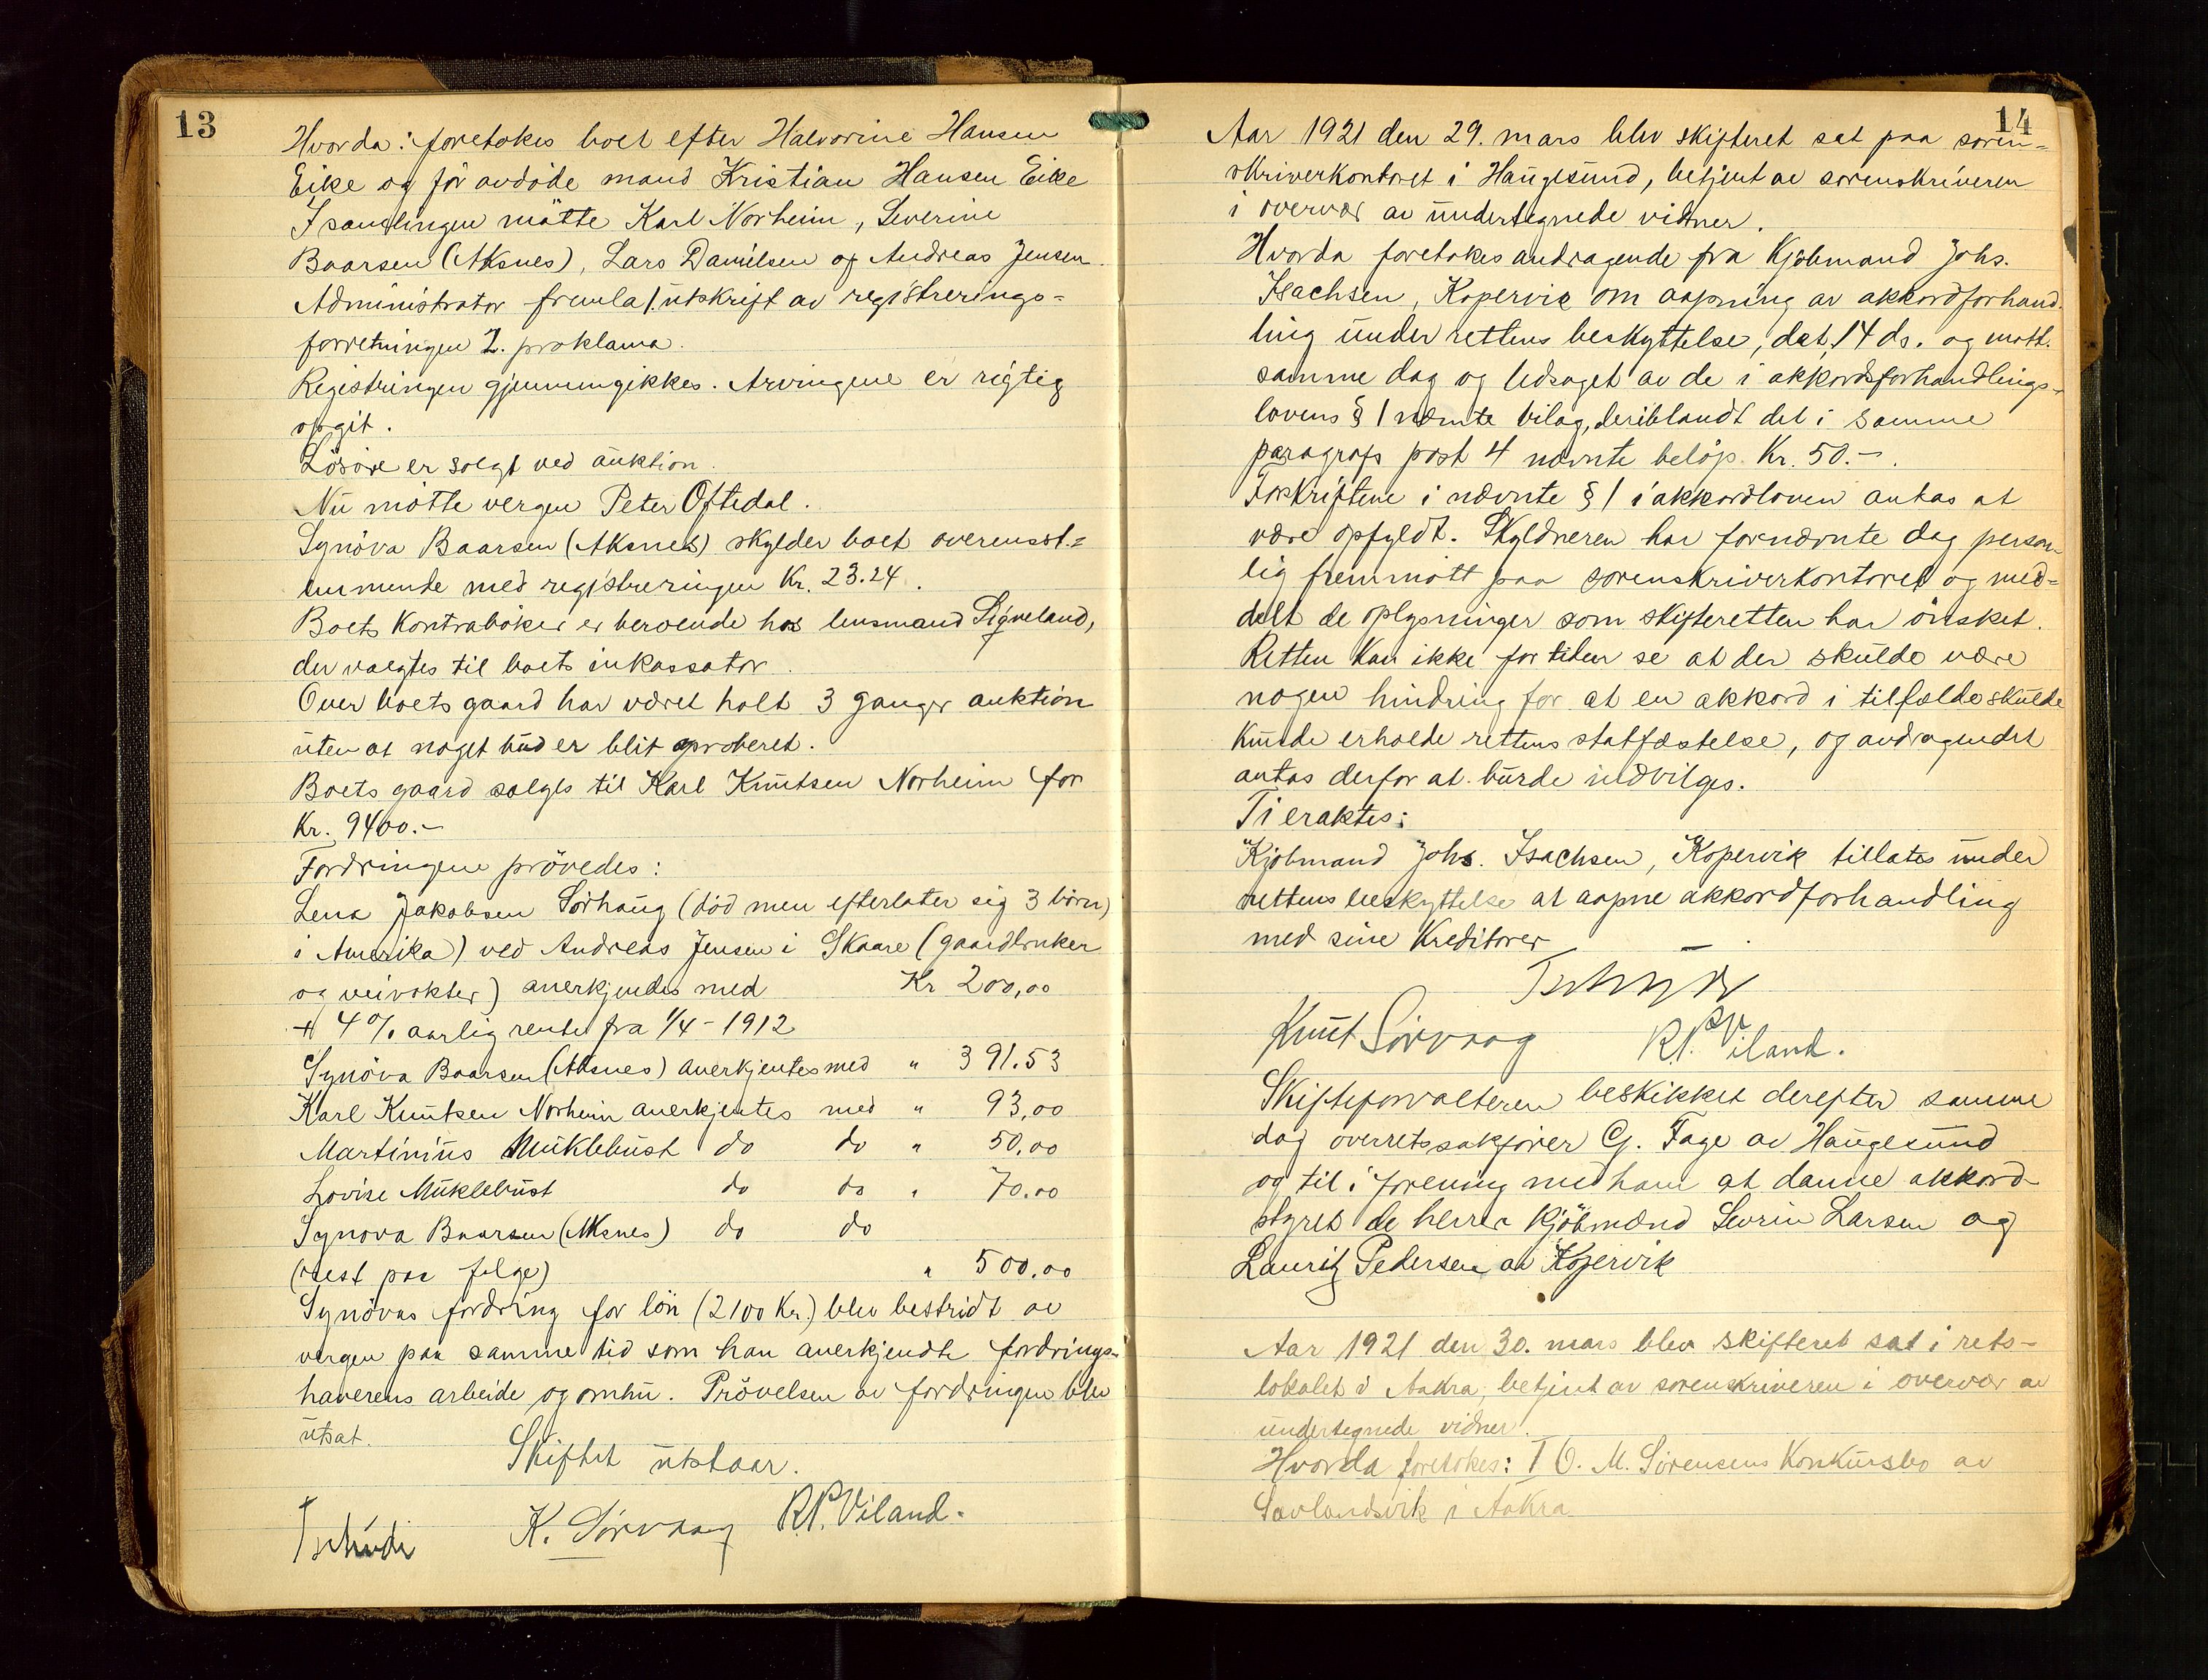 13
Hvorda: foretokes boet efter Halvorine Hansen
Eike og för avdöde mand Kristian Hansen Eike
I samlingen mötte Karl Norheim, Severine
Baarsen (Aksnes), Lars Danielsen og Andreas Jensen.
Administrator fremla 1. utskrift av registrerings-
forretningen 2. proklama.
Registringen gjennemgikkes. Arvingene er rigtig
opgit.
Lösöre er solgt ved auktion.
Nu mötte vergen Peter Oftedal.
Synöva Baarsen (Aksnes) skylder boet overensst.-
emmende med registreringen Kr. 23.24.
Boets Kontraböker er beroende hos lensmand Signeland,
der valgtes til boets inkassator.
Over boets gaard har været holt 3 ganger auktion
uten at noget bud er blit aproberet.
Boets gaard solgts til Karl Knutsen Norheim for
Kr. 9400.-
Fordringene prövedes:
Lena Jakobsen Sörhaug (död men efterlater sig 3 börn)
i Amerika) ved Andreas Jensen i Skaare (gaardbruker
og veivokter) anerkjendes med Kr 200,00
+ 4% aarlig rente fra 1/4 - 1912
Synöva Baarsen (Aksnes) anerkjentes med " 391.53
Karl Knutsen Norheim anerkjentes med " 93,00
Martinius Muklebust do do " 50.00
Lovise Muklebust do do " 70.00
Synova Baarsen (Aksnes) do do
(rest paa følge) " 500.00
Synövas fordring for lön (2100 Kr.) blev bestridt av
vergen paa samme tid som han anerkjendte fordrings-
haverens arbeide og omhu. Prövelsen av fordringen blev
utsat.
Skiftet utstaar.
Tschudi K. Sörvaag R.P. Viland.
14
Aar 1921 den 29. mars blev skifteret sat paa soren-
skriverkontoret i Haugesund, betjent av sorenskriveren
i overvær av undertegnede vidner.
Hvorda foretokes andragende fra Kjöbmand Johs.
Isachsen, Kopervik om aapning av akkordforhand.
ling under rettens beskyttelse, dat. 14 ds. og mott.
samme dag og ledsaget av de i akkordsforhandlings-
lovens § 1 nævnte bilag, deriblandt det i samme
paragrafs post 4 nævnte belöp Kr. 50.-.
Forskriftene i nævnte § 1 i akkordloven antas at
være opfyldt. Skyldneren har fornævnte dag person-
lig fremmött paa sorenskriverkontoret og med-
delt de oplysninger som skifteretten har önsket.
Retten kan ikke for tiden se at der skulde være
nogen hindring for at en akkord i tilfælde skulde
kunde erholde rettens statfæstelse, og andragendet
antas derfor at burde indvilges.
Ti eraktes:
Kjöbmand Johs. Isachsen, Kopervik tillates under
rettens beskyttelse at aapne akkordforhandling
med sine Kreditorer
Tschudi
Knut Sörvaag R.P. Viland.
Skifteforvalteren beskikket derefter samme
dag overretssakförer G. Fage av Haugesund
og til i forening med ham at danne akkord-
styret de herrer Kjöbmænd Sevrin Larsen og
Lauritz Pedersen av Kopervik
Aar 1921 den 30. mars blev skifteret sat i rets-
lokalet i Aakra, betjent av sorenskriveren i overvær av
undertegnede vidner.
Hvorda foretokes: I O. M. Sörensens Konkursbo av
Sævlandsvik i Aakra